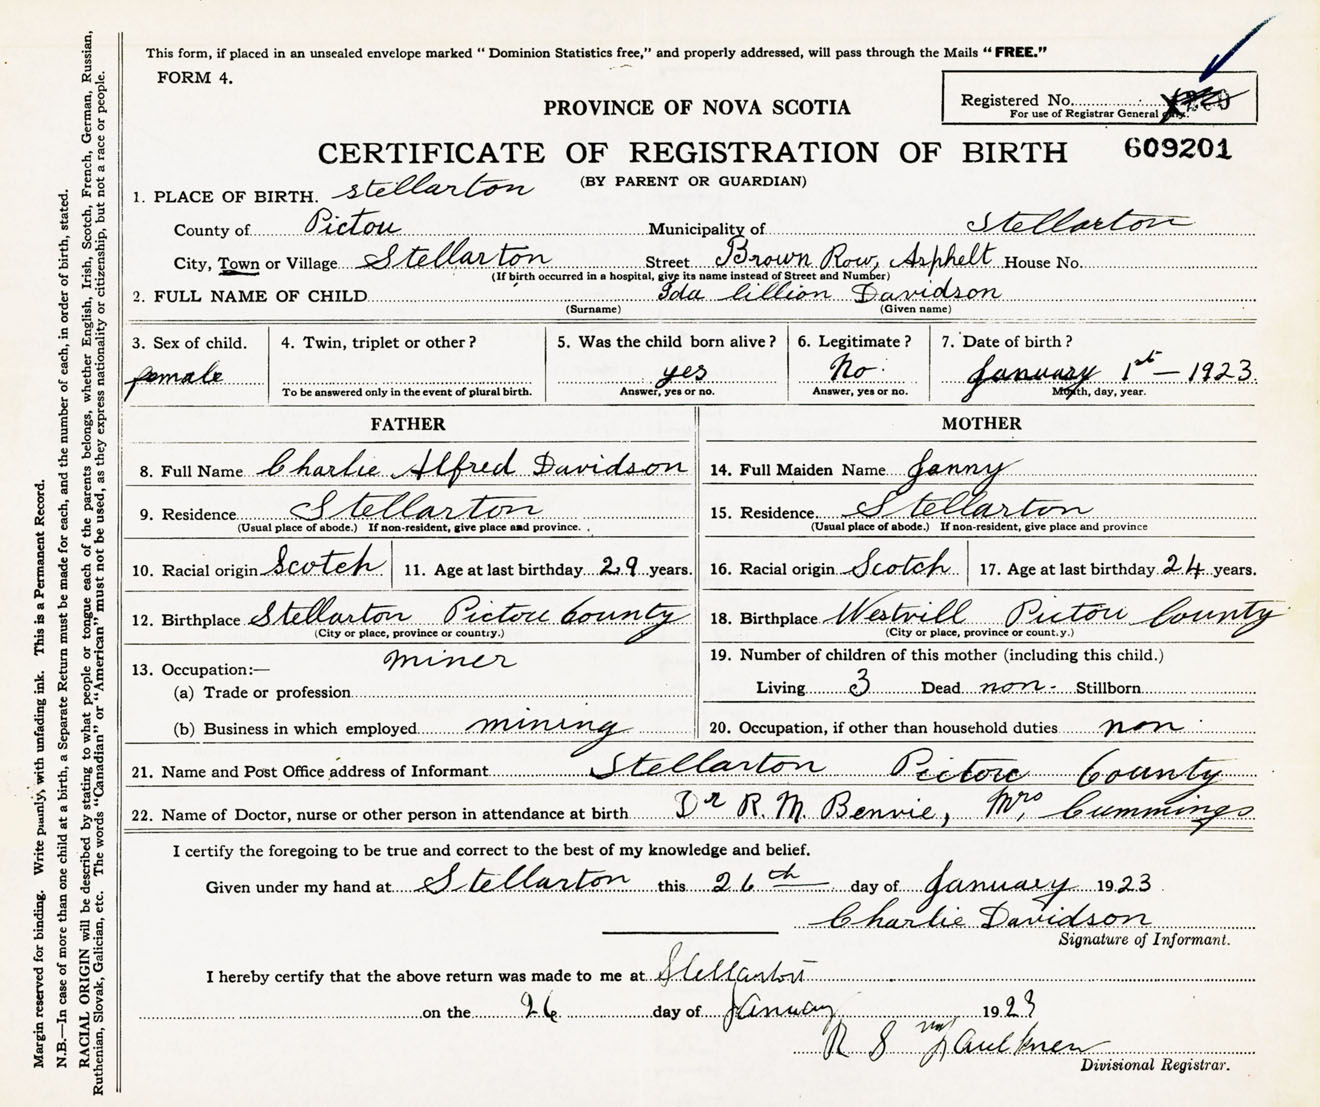 This form, if placed in an unsealed envelope marked " Dominion Statistics free," and properly addressed, will pass through the Mails "FREE."
FORM 4.
PROVINCE OF NOVA SCOTIA
Registered No.
For use of Registrar General only.
CERTIFICATE OF REGISTRATION OF BIRTH 609201
(BY PARENT OR GUARDIAN)
1. PLACE OF BIRTH. stellarton
County of Pictou Municipality of Stellarton
City, Town or Village Stellarton Street Brown Row, Asphelt House No.
(If birth occurred in a hospital, give its name instead of Street and Number)
2. FULL NAME OF CHILD Ida lillion Davidson
(Surname) (Given name)
3. Sex of child. 4. Twin, triplet or other? 5. Was the child born alive? 6. Legitimate? 7. Date of birth?
female yes No January 1st — 1923.
To be answered only in the event of plural birth. Answer, yes or no. Answer, yes or no. Month, day, year.
FATHER MOTHER
8. Full Name Charlie Alfred Davidson 14. Full Maiden Name Janny
9. Residence Stellarton 15. Residence Stellarton
(Usual place of abode.) If non-resident, give place and province. (Usual place of abode.) If non-resident, give place and province
10. Racial origin Scotch 11. Age at last birthday 29 years. 16. Racial origin Scotch 17. Age at last birthday 24 years.
12. Birthplace Stellarton Pictou County 18. Birthplace Westvill Pictou County
(City or place, province or country.) (City or place, province or country.)
13. Occupation:— miner 19. Number of children of this mother (including this child.)
(a) Trade or profession Living 3 Dead non- Stillborn
(b) Business in which employed mining 20. Occupation, if other than household duties non
21. Name and Post Office address of Informant Stellarton Pictou County
22. Name of Doctor, nurse or other person in attendance at birth Dr R. M. Benvie, Mrs, Cummings
I certify the foregoing to be true and correct to the best of my knowledge and belief.
Given under my hand at Stellarton this 26th day of January 1923
Charlie Davidson
Signature of Informant.
I hereby certify that the above return was made to me at Stellarton
on the 26 day of January 1923
R S Faulkner
Divisional Registrar.
Margin reserved for binding. Write plainly, with unfading ink. This is a Permanent Record.
N.B.—In case of more than one child at a birth, a Separate Return must be made for each, and the number of each, in order of birth, stated.
RACIAL ORIGIN will be described by stating to what people or tongue each of the parents belongs, whether English, Irish, Scotch, French, German, Russian,
Ruthenian, Slovak, Galician, etc. The words "Canadian" or "American" must not be used, as they express nationality or citizenship, but not a race or people.